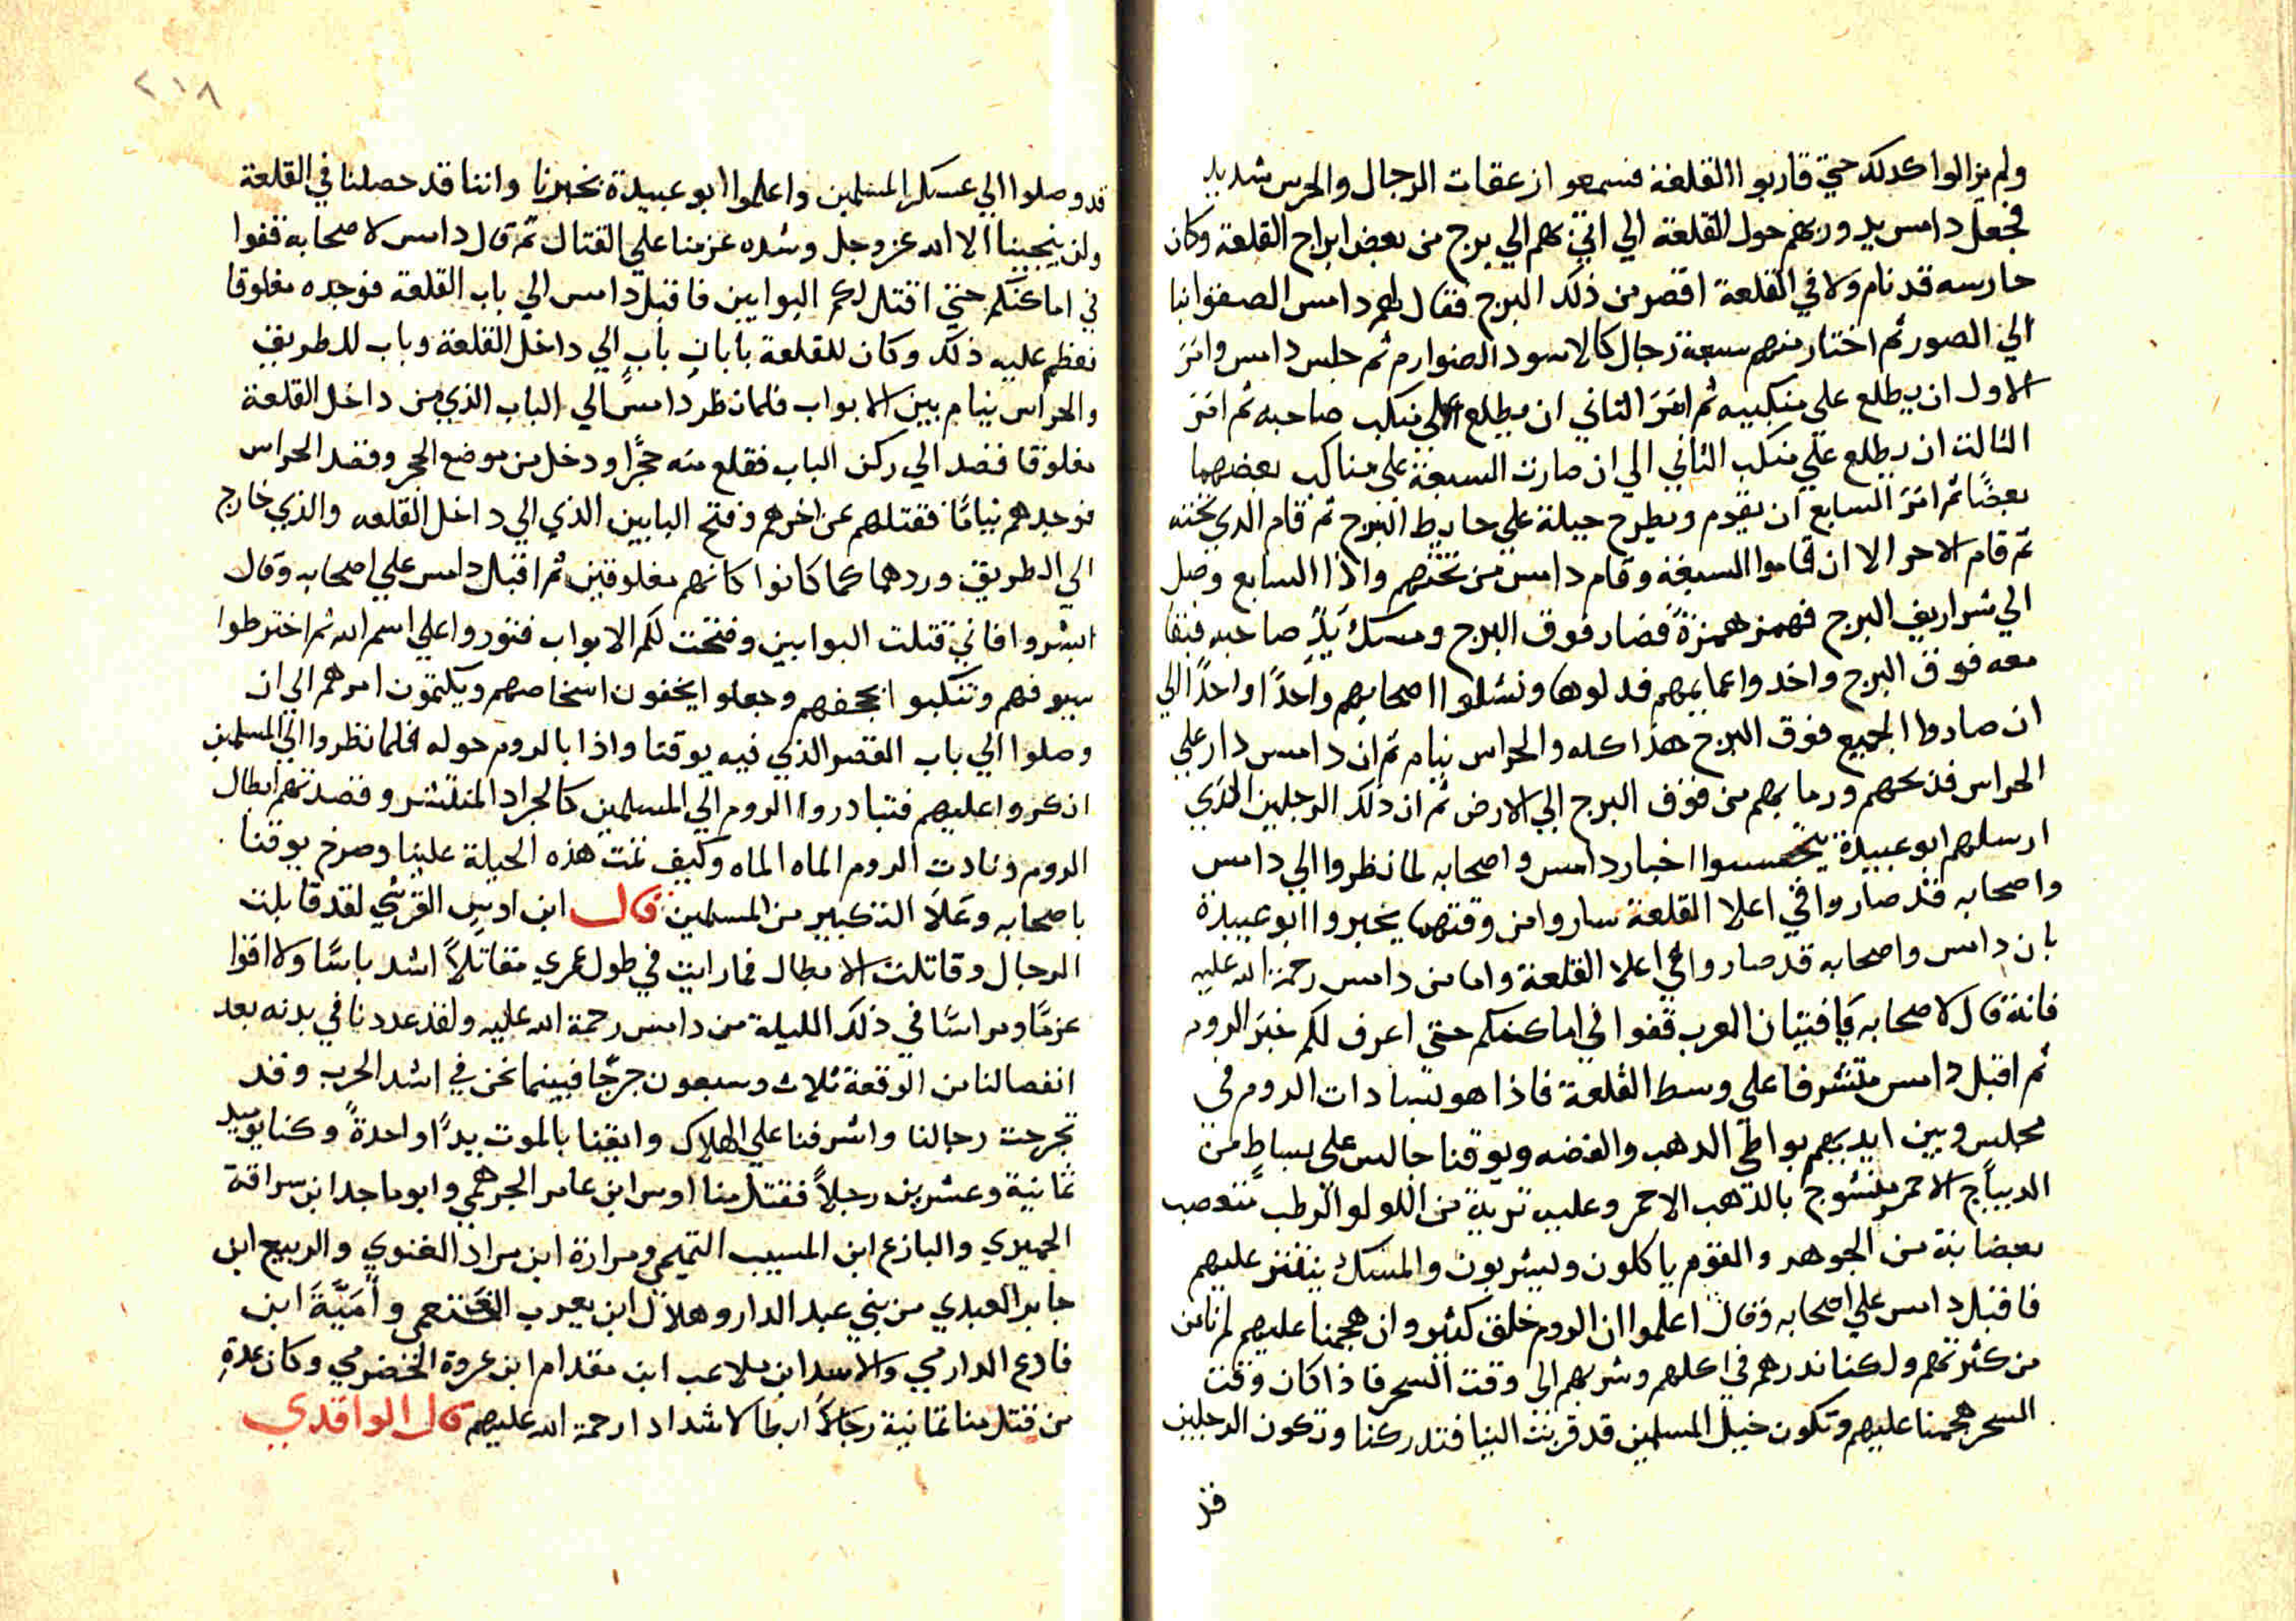 ولم يزالوا كدلك حتي قاربوا القلعة فسمعو ازعقات الرجال والحرس شديد
فجعل دامس يدور بهم حول القلعة الي اتي بهم الي برج من بعض ابراج القلعة وكان
حارسه قد نام ولا في القلعة اقصر من ذلك البرج فقال لهم دامس الصقوا بنا
الي الصور ثم اختار منهم سبعة رجال كالاسود الضوارم ثم جلس دامس وامر
الاول ان يطلع علي منكبيه ثم امر الثاني ان يطلع علي منكب صاحبه ثم امر
الثالت ان يطلع علي منكب الثاني الي ان صارت السبعة علي مناكب بعضهما
بعضًا ثم امر السابع ان يقوم ويطرح حيلة علي حايط البرج ثم قام الدي تحته
ثم قام الاخر الا ان قاموا السبعة وقام دامس من تحتهم واذا السابع وصل
الي شراريف البرج فهمز همزةً فصار فوق البرج ومسك يدً صاحبه فبقا
معه فوق البرج واخدوا عمايمهم فدلوها ونشلوا اصحابهم واحدًا واحدًا الي
ان صاروا الجميع فوق البرج هذا كله والحراس نيام ثم ان دامس دار علي
الحراس فذبحهم ورما بهم من فوق البرج الي الارض ثم ان ذلك الرجلين الذي
ارسلهم ابو عبيدة يتحسسوا اخبار دامس واصحابه لما نظروا الي دامس
واصحابه قد صاروا في اعلا القلعة ساروا من وقتهما يخبروا ابو عبيدة
بان دامس واصحابه قد صاروا في اعلا القلعة واما من دامس رحمة الله عليه
فانه قال لاصحابه يا فتيان العرب قفوا في اماكنكم حتي اعرف لكم خبر الروم
ثم اقبل دامس متشرفا علي وسط القلعة فاذا هو بسادات الروم في
مجلس وبين ايديهم بواطي الدهب والفضه ويوقنا جالس علي بساطٍ من
الديباج الاحمر منسوج بالذهب الاحمر وعليه تربة من اللولو الرطب متعصب
بعضابة من الجوهر والقوم ياكلون ويشربون والمسك ينتثر عليهم
فاقبل دامس علي اصحابه وقال اعلموا ان الروم خلق كثير وان هجمنا عليهم لم نامن
من كثرتهم ولكنا ندرهم في اكلهم وشربهم الي وقت السحر فاذا كان وقت
السحر هجمنا عليهم وتكون خيل المسلمين قد قربت الينا فتدركنا وتكون الرجلين
قد
٢١٨
قد وصلوا الي عسكر المسلمين واعلموا ابو عبيدة بخبرنا واننا قد حصلنا في القلعة
ولن ينجينا الا الله عز وجل وشده عزمنا علي القتال ثم قال دامس لاصحابه قفوا
في اماكنكم حتي اقتل لكم البوابين فاقبل دامس الي باب القلعة فوجده مغلوقا
فعظم عليه ذلك وكان للقلعة بابان باب الي داخل القلعة وباب للطريق
والحراس نيام بين الابواب فلما نظر دامس الي الباب الذي من داخل القلعة
مغلوقا قصد الي ركن الباب فقلع منه حجرًا ودخل من موضع الحجر وقصد الحراس
فوجدهم نيامًا فقتلهم عن اخرهم وفتح البابين الذي الي داخل القلعه والذي خارج
الي الطريق وردهما كما كانوا كانهم مغلوقين ثم اقبل دامس علي اصحابه وقال
ابشروا فاني قتلت البوابين وفتحت لكم الابواب فثوروا علي اسم الله ثم اخترطوا
سيوفهم وتنكبوا بحجفهم وجعلوا يخفون اشخاصهم ويكتمون امرهم الي ان
وصلوا الي باب القصر الذي فيه يوقنا واذا بالروم حوله فلما نظروا الي المسلمين
انكروا عليهم فتبادروا الروم الي المسلمين كالجراد المنتشر وقصدتهم ابطال
الروم ونادت الروم الماه الماه وكيف تمت هذه الحيلة علينا وصرخ يوقنا
باصحابه وعلا التكبير من المسلمين قال ابن اديس القرشي لقد قابلت
الرجال وقاتلت الابطال فما رايت في طول عمري مقاتلاً اشد باسًا ولا اقوا
عزمًا ومراسًا في ذلك الليلة من دامس رحمة الله عليه ولقد عددنا في بدنه بعد
انفصالنا من الوقعة ثلاث وسبعون جرحًا فبينما نحن في اشد الحرب وقد
تجرحت رجالنا واشرفنا علي الهلاك وايقنا بالموت يدًا واحدةً وكنا يوميد
ثمانية وعشرين رجلاً فقتل منا اوس ابن عامر الجرهمي وابو ماجد ابن سراقة
الحميري والبازع ابن المسيب التميمي ومرارة ابن مراد الغنوي والربيع ابن
جابر العبدي من بني عبد الدار وهلال ابن يعرب الخثعمي وأميَّةَ ابن
فادع الدارمي والاسد ابن ملاعب ابن مقدام ابن عروة الحضرمي وكان عدة
من قتل منا ثمانية رجالاً ابطالا شدادا رحمة الله عليهم قال الواقدي